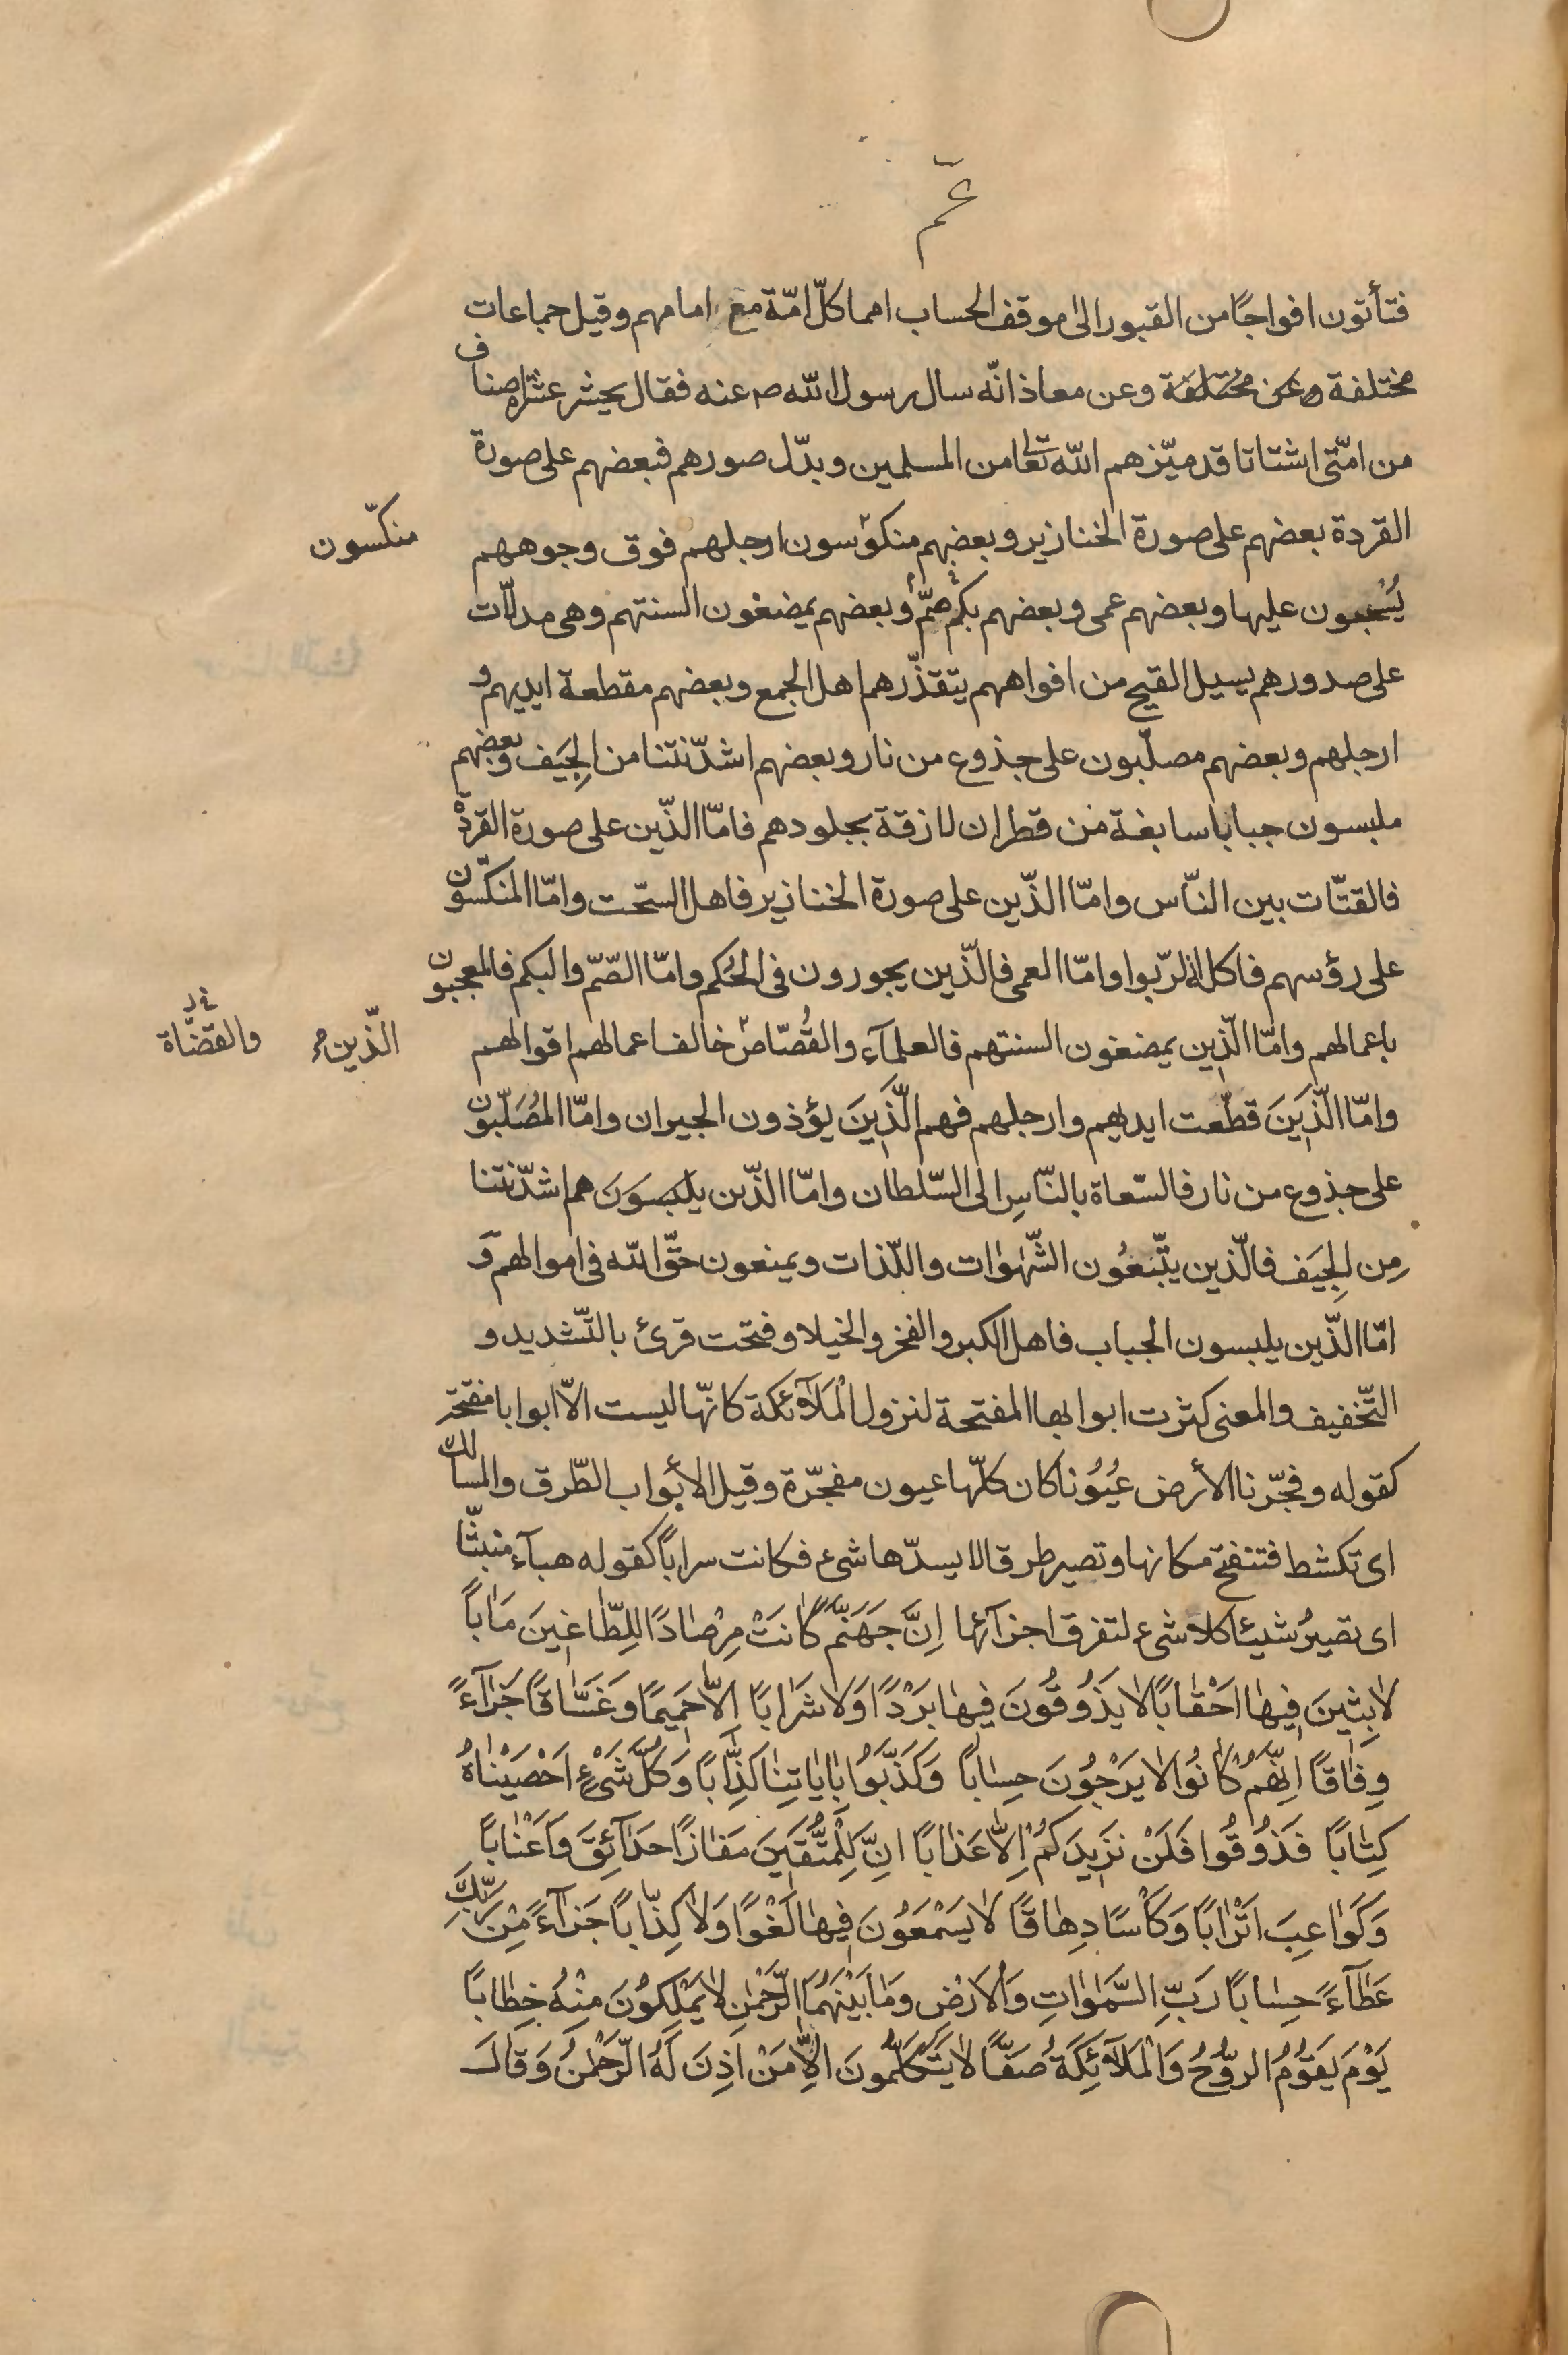 عمّ
فتأتون افواجًا من القبور الى موقف الحساب امما كلّ امّة مع امامهم وقيل جماعات
مختلفة وعن مختلفة وعن معاذ انّه سال رسول الله ص عنه فقال يحشر عشرة اصناف
من امّتى اشتاتا قد ميّزهم الله تعا من المسلمين وبدّل صورهم فبعضهم على صورة
القردة بعضهم على صورة الخنازير وبعضهم منكوّسون ارجلهم فوق وجوههم
منكّسون
يُسْحبون عليها وبعضهم عمى وبعضهم بكمٌ صمٌّ وبعضهم يمضغون السنتهم وهى مدلّات
على صدورهم يسيل القيح من افواههم يتقذّرهم اهل الجمع وبعضهم مقطعة ايديهم و
ارجلهم وبعضهم مصلّبون على جذوع من نار وبعضهم اشدّ نتنا من الجِيَف وبعضهم
ملبسون جبابا سابغة من قطران لازقة بجلودهم فامّا الذّين على صورة القردة
فالقتّات بين النّاس وامّا الذّين على صورة الخنازير فاهل السّحت وامّا المنكّسون
على رؤسهم فاكلة الرّبوا وامّا العمى فالّذين يجورون فى الحُكم وامّا الصّمّ والبكم فالمعجبون
باعمالهم وامّا الّذين يمضغون السنتهم فالعلمآء والقُصّاص خالف اعمالهم اقوالهم
الّذين
والقضّاة
وامّا الّذَينَ قطّعت ايديهم وارجلهم فهم الّذَينَ يؤذون الجيران وامّا المصُلّبون
على جذوع من نار فالسّعاة بالنّاسِ الى السّلطان وامّا الذّين يلبصوَنَ هم اشدّ نتنا
مِن الجِيَف فالّذين يتّبَعُون الشّهوٰات واللّذات ويمنعون حقّ الله فى اموالهم وَ
امّا الذّين يلبسون الجباب فاهل الكبر والفخر والخيلا وفتحت قرئ بالتّشديد و
التّخفيف والمعنى كثرت ابوابها المفتحة لنزول الْملآئكة كانّها ليست الّا ابوابا مفتحة
كقوله وفجّرنا الأرض عُيُوُنا كان كلّها عيون مفجّرة وقيل الأبواب الطّرق والمسالك
اى تكشط فتنفتح مكانها وتصير طرقا لا يسدّها شىء فكانت سراباً كقوله هبآء منبثّا
اى تصيرُ شيئا كلا شىء لتفرق اجزآئها اِنَّ جَهَنَّمَ كٰانَتْ مِرْصٰادًا لِلطّٰاغينَ مَاٰباً
لاٰبِثينَ فيهٰا اَحْقٰابًا لاٰ يَذُوقُونَ فيهٰا بَرْدًا وَلاٰ شَرٰابًا اِلاّٰ حَميمًا وَغَسّٰاقًا جَزٰآءً
وِفٰاقًا اِنَّهُمْ كٰانُوا لاٰ يَرْجُونَ حِسٰاباً وَكَذَّبُوا بِاٰيٰاتِنٰا كِذّٰابًا وَكُلَّ شَىْءٍ اَحْصَيْنٰاهُ
كِتٰابًا فَذُوقُوا فَلَنْ نَزيدَكُمْ اِلاّٰ عَذٰابًا اِنَّ لِلْمُتَّقينَ مَفٰازًا حَدٰآئِقَ وَاَعْنٰاباً
وَكَوٰاعِبَ اَتْرٰابًا وَكَأْسًا دِهٰاقًا لاٰ يَسْمَعُونَ فيهٰا لَغْوًا وَلاٰ كِذّٰاباً جَزٰآءً مِنْ رَبِّكَ
عَطٰآءً حِسٰابًا رَبِّ السَّمٰوٰاتِ وَالْاَرْضِ وَمٰا بَيْنَهُمَا الرَّحْمٰنِ لاٰ يَمْلِكُونَ مِنْهُ خِطٰاباً
يَوْمَ يَقُومُ الرُّوحُ وَالْمَلاٰۤئِكَةُ صَفًّا لاٰ يَتَكَلَّمُونَ اِلاّٰ مَنْ اَذِنَ لَهُ الرَّحْمٰنُ وَقٰالَ